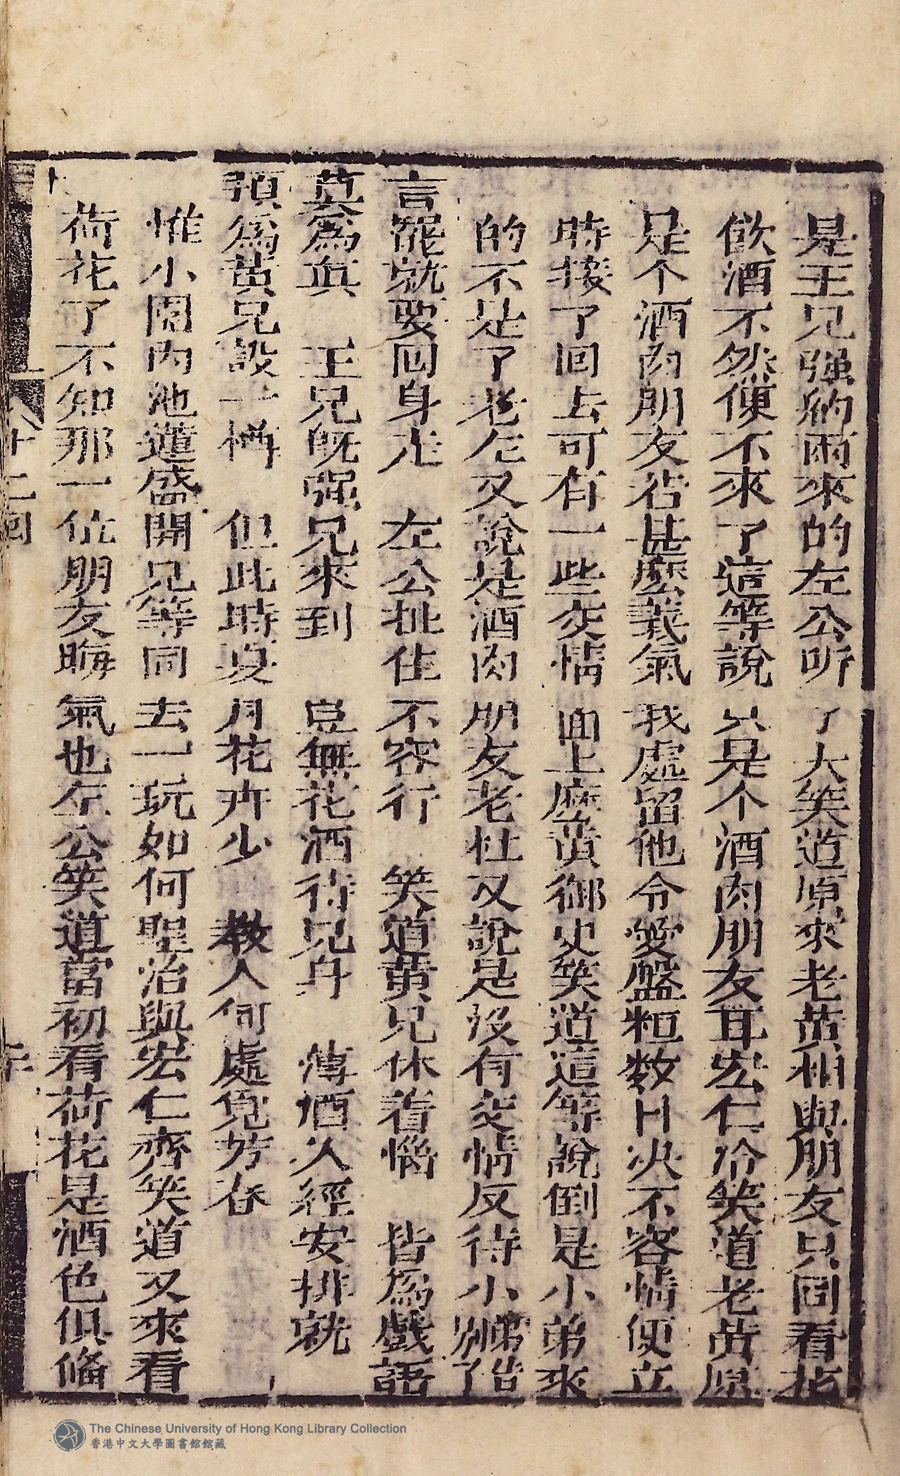 是王兄强納而來的左公听了大笑道原來老黄相與朋友只圖看花
飲酒不然便不來了這等說只是个酒肉朋友耳宏仁冷笑道老黄原
是个酒肉朋友若甚麽義氣我處留他令愛盤桓数日决不容情便立
時接了回去可有一些交情面上麽黄御史笑道這等說倒是小弟來
的不是了老左又說是酒肉朋友老杜又說是没有交情反待小弟告
言罷就要回身走 左公扯住不容行 笑道黄兄休着惱 皆爲戲語
莫為真 王兄旣强兄來到 豈無花酒待兄身 薄酒久經安排就
預爲黄兄設一樽 但此時夏月花卉少 教人何處覓芳春
惟小園内池蓮盛開兄等同去一玩如何聖治與宏仁齊笑道又來看
荷花了不知那一位朋友晦氣也左公笑道當初看荷花是酒色俱備
十二回
The Chinese University of Hong Kong Library Collection
香港中文大學圖書館館藏